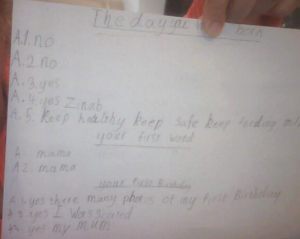 The day you were born
A.1. no
A.2 no.
A.3. yes
A.4. yes Zinab
A.5. Keep healthy keep safe keep feeding
your first word
A. mama
A2. mama
your first Birthday
A. yes there many photos of my first Birthday
A 2 yes I was scared
yes my mum